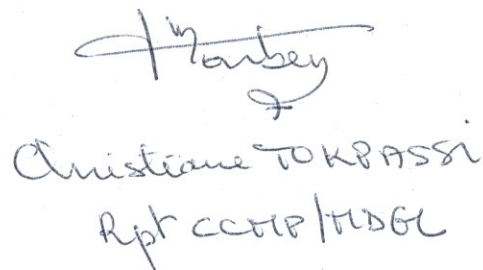 Christiane TOKPASSI
Rpt CCMP/MDGL